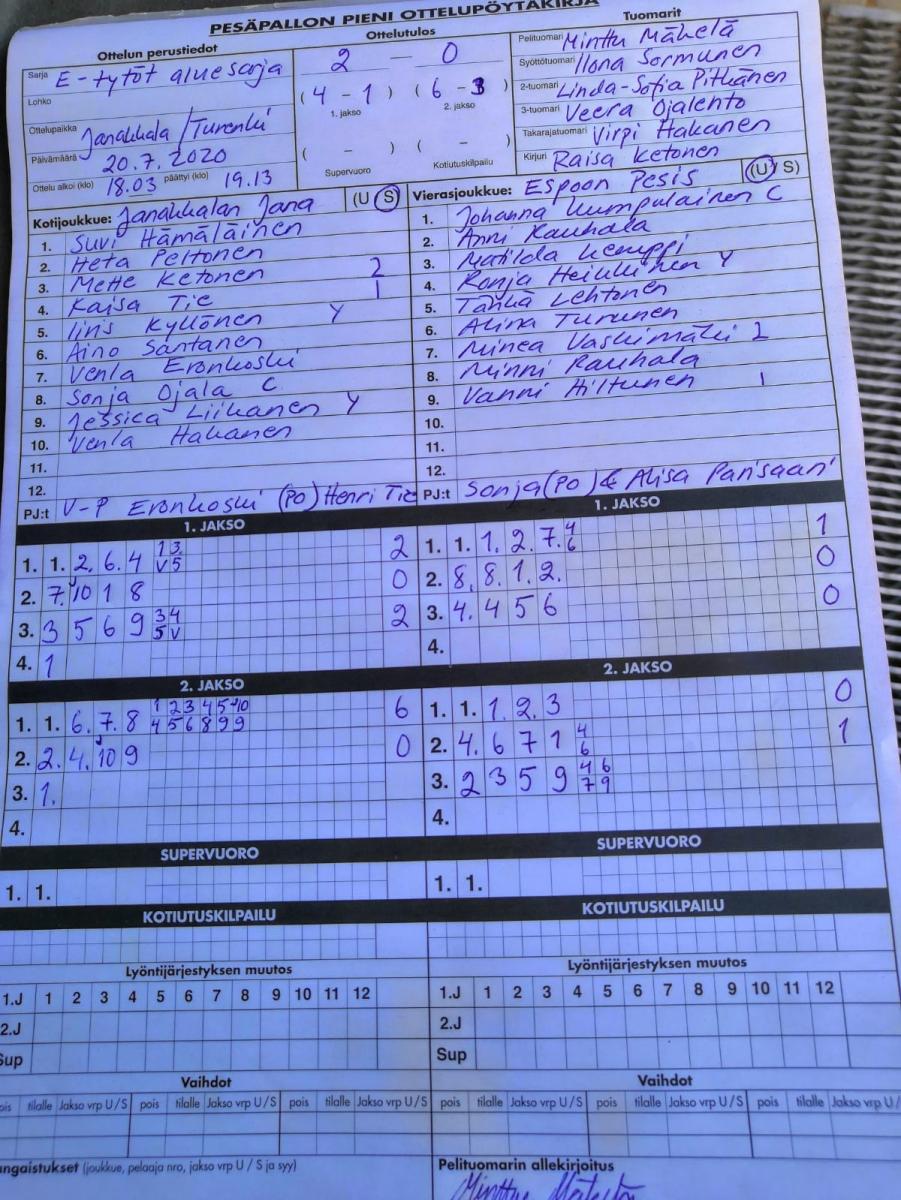 PESÄPALLON PIENI OTTELUPÖYTÄKIRJA
Ottelun perustiedot
Sarja E-tytöt aluesarja
Lohko
Ottelupaikka Janakkala/Turenki
Päivämäärä 20.7.2020
Ottelu alkoi (klo) 18.03 päättyi (klo) 19.13
Ottelutulos
2 — 0
(4 - 1) (6 - 3)
1. jakso 2. jakso
( - ) ( - )
Supervuoro Kotiutuskilpailu
Tuomarit
Pelituomari Minttu Mähelä
Syöttötuomari Ilona Sormunen
2-tuomari Linda-Sofia Pitkänen
3-tuomari Veera Ojalehto
Takarajatuomari Virpi Hakanen
Kirjuri Raisa Ketonen
Kotijoukkue: Janakkalan Jana (U S)
1. Suvi Hämäläinen
2. Heta Peltonen
3. Mette Ketonen 2
4. Kaisa Tie 1
5. Iiris Kyllönen Y
6. Aino Santanen
7. Venla Eronkoski
8. Sonja Ojala C
9. Jessica Liikanen Y
10. Venla Hakanen
11.
12.
PJ:t V-P Eronkoski (PO) Henri Tie
Vierasjoukkue: Espoon Pesis (U S)
1. Johanna Kumpulainen C
2. Anni Rauhala
3. Matilda Kemppi
4. Ronja Heikkinen Y
5. Lehtonen
6. Alina Turunen
7. Minea Vaskimäki 2
8. Minni Rauhala
9. Vanni Hiltunen 1
10.
11.
12.
PJ:t Sonja (PO) & Alisa Parisaari
1. JAKSO
1. 1. 2. 6. 4 1 3 V 5 2
2. 7. 10 1 8 0
3. 3 5 6 9 3 4 5 V 2
4. 1
1. JAKSO
1. 1. 1. 2. 7. 4 6 1
2. 8. 8. 1. 2. 0
3. 4. 4 5 6 0
4.
2. JAKSO
1. 1. 6. 7. 8 1 2 3 4 5 10 4 5 6 8 9 9 6
2. 2. 4. 10 9 0
3. 1.
4.
2. JAKSO
1. 1. 1. 2. 3 0
2. 4. 6 7 1 4 6 1
3. 2 3 5 9 4 6 7 9
4.
SUPERVUORO
1. 1.
SUPERVUORO
1. 1.
KOTIUTUSKILPAILU
KOTIUTUSKILPAILU
Lyöntijärjestyksen muutos
1.J 1 2 3 4 5 6 7 8 9 10 11 12
2.J
Sup
Lyöntijärjestyksen muutos
1.J 1 2 3 4 5 6 7 8 9 10 11 12
2.J
Sup
Vaihdot
pois tilalle Jakso vrp U/S pois tilalle Jakso vrp U/S pois tilalle Jakso vrp U/S
Vaihdot
pois tilalle Jakso vrp U/S pois tilalle Jakso vrp U/S pois tilalle Jakso vrp U/
ngaistukset (joukkue, pelaaja nro, jakso vrp U / S ja syy)
Pelituomarin allekirjoitus
Minttu